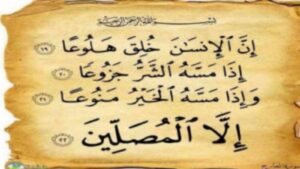 بِسْمِ ٱللَّهِ ٱلرَّحْمَٰنِ ٱلرَّحِيمِ
إِنَّ ٱلْإِنسَٰنَ خُلِقَ هَلُوعًا ١٩
إِذَا مَسَّهُ ٱلشَّرُّ جَزُوعًا ٢٠
وَإِذَا مَسَّهُ ٱلْخَيْرُ مَنُوعًا ٢١
إِلَّا ٱلْمُصَلِّينَ ٢٢